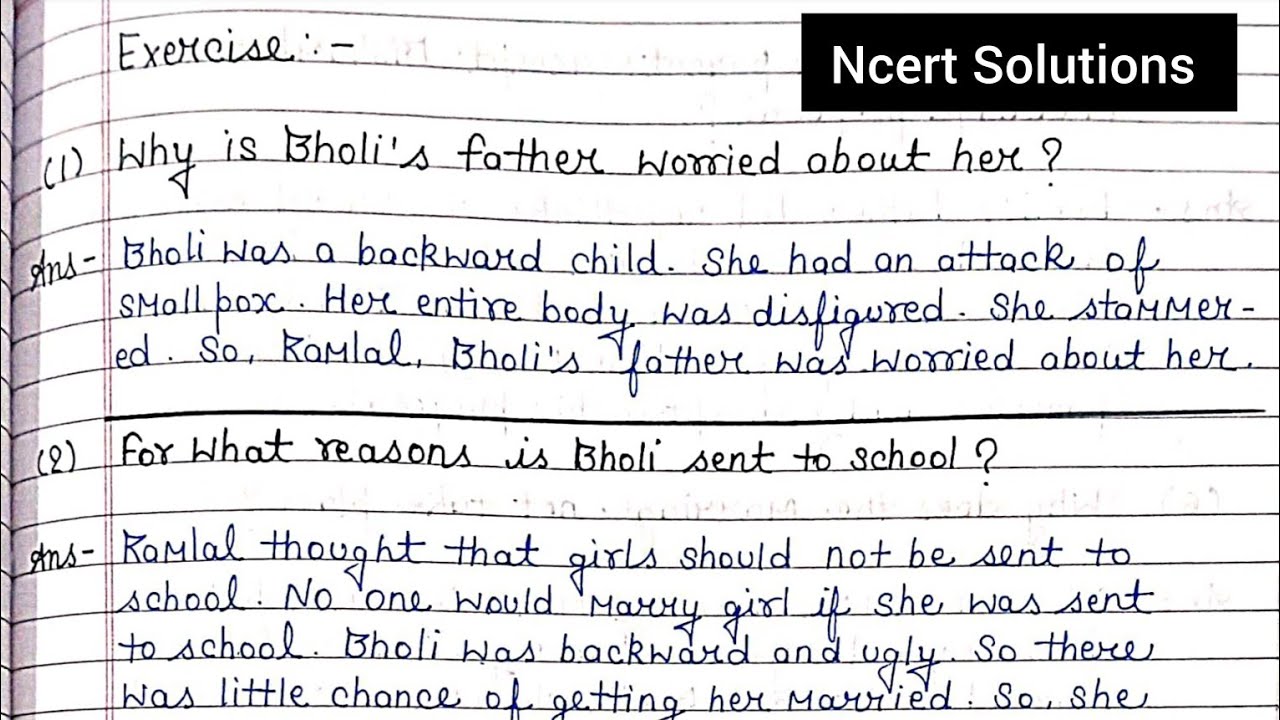 Exercise :-
Ncert Solutions
(1) Why is Bholi's father worried about her?
Ans- Bholi was a backward child. She had an attack of
smallpox. Her entire body was disfigured. She stammer-
ed. So, Ramlal, Bholi's father was worried about her.
(2) For what reasons is Bholi sent to school?
Ans- Ramlal thought that girls should not be sent to
school. No one would marry girl if she was sent
to school. Bholi was backward and ugly. So there
was little chance of getting her married. So, she